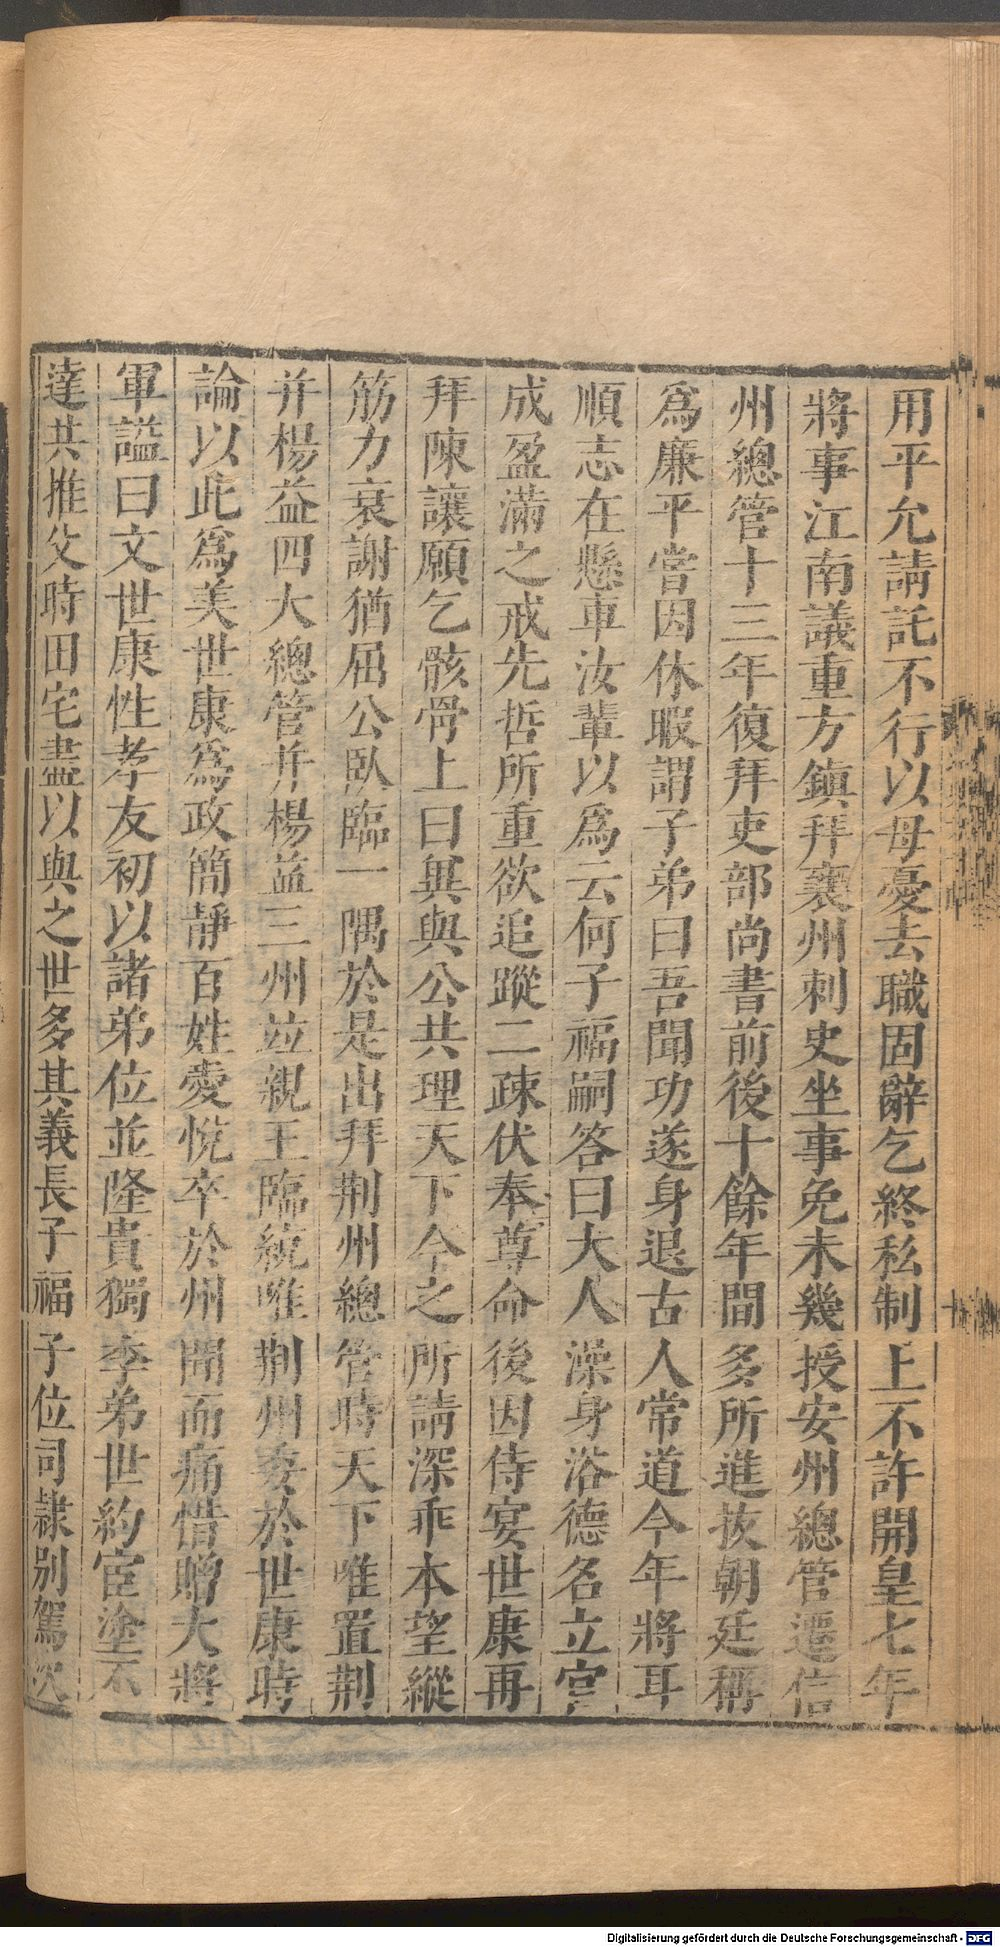 用平允請託不行以母憂去職固辭乞終私制上不許開皇七年
將事江南議重方鎮拜襄州刺史坐事免未幾授安州總管遷信
州總管十三年復拜吏部尚書前後十餘年間多所進拔朝廷稱
爲廉平嘗因休暇謂子弟曰吾聞功遂身退古人常道今年將耳
順志在懸車汝輩以爲云何子福嗣答曰大人澡身浴德名立官
成盈滿之戒先哲所重欲追蹤二疎伏奉尊命後因侍宴世康再
拜陳讓願乞骸骨上曰與公共理天下今之所請深乖本望縱
筋力衰謝猶屈公臥臨一隅於是出拜荆州總管時天下唯置荆
并楊益四大總管并楊益三州竝親王臨統唯荆州委於世康時
論以此爲美世康爲政簡靜百姓愛悅卒於州聞而痛惜贈大將
軍謚曰文世康性孝友初以諸弟位並隆貴獨季弟世約宦塗不
達共推父時田宅盡以與之世多其義長子福子位司隷别駕次
Digitalisierung gefördert durch die Deutsche Forschungsgemeinschaft - DFG